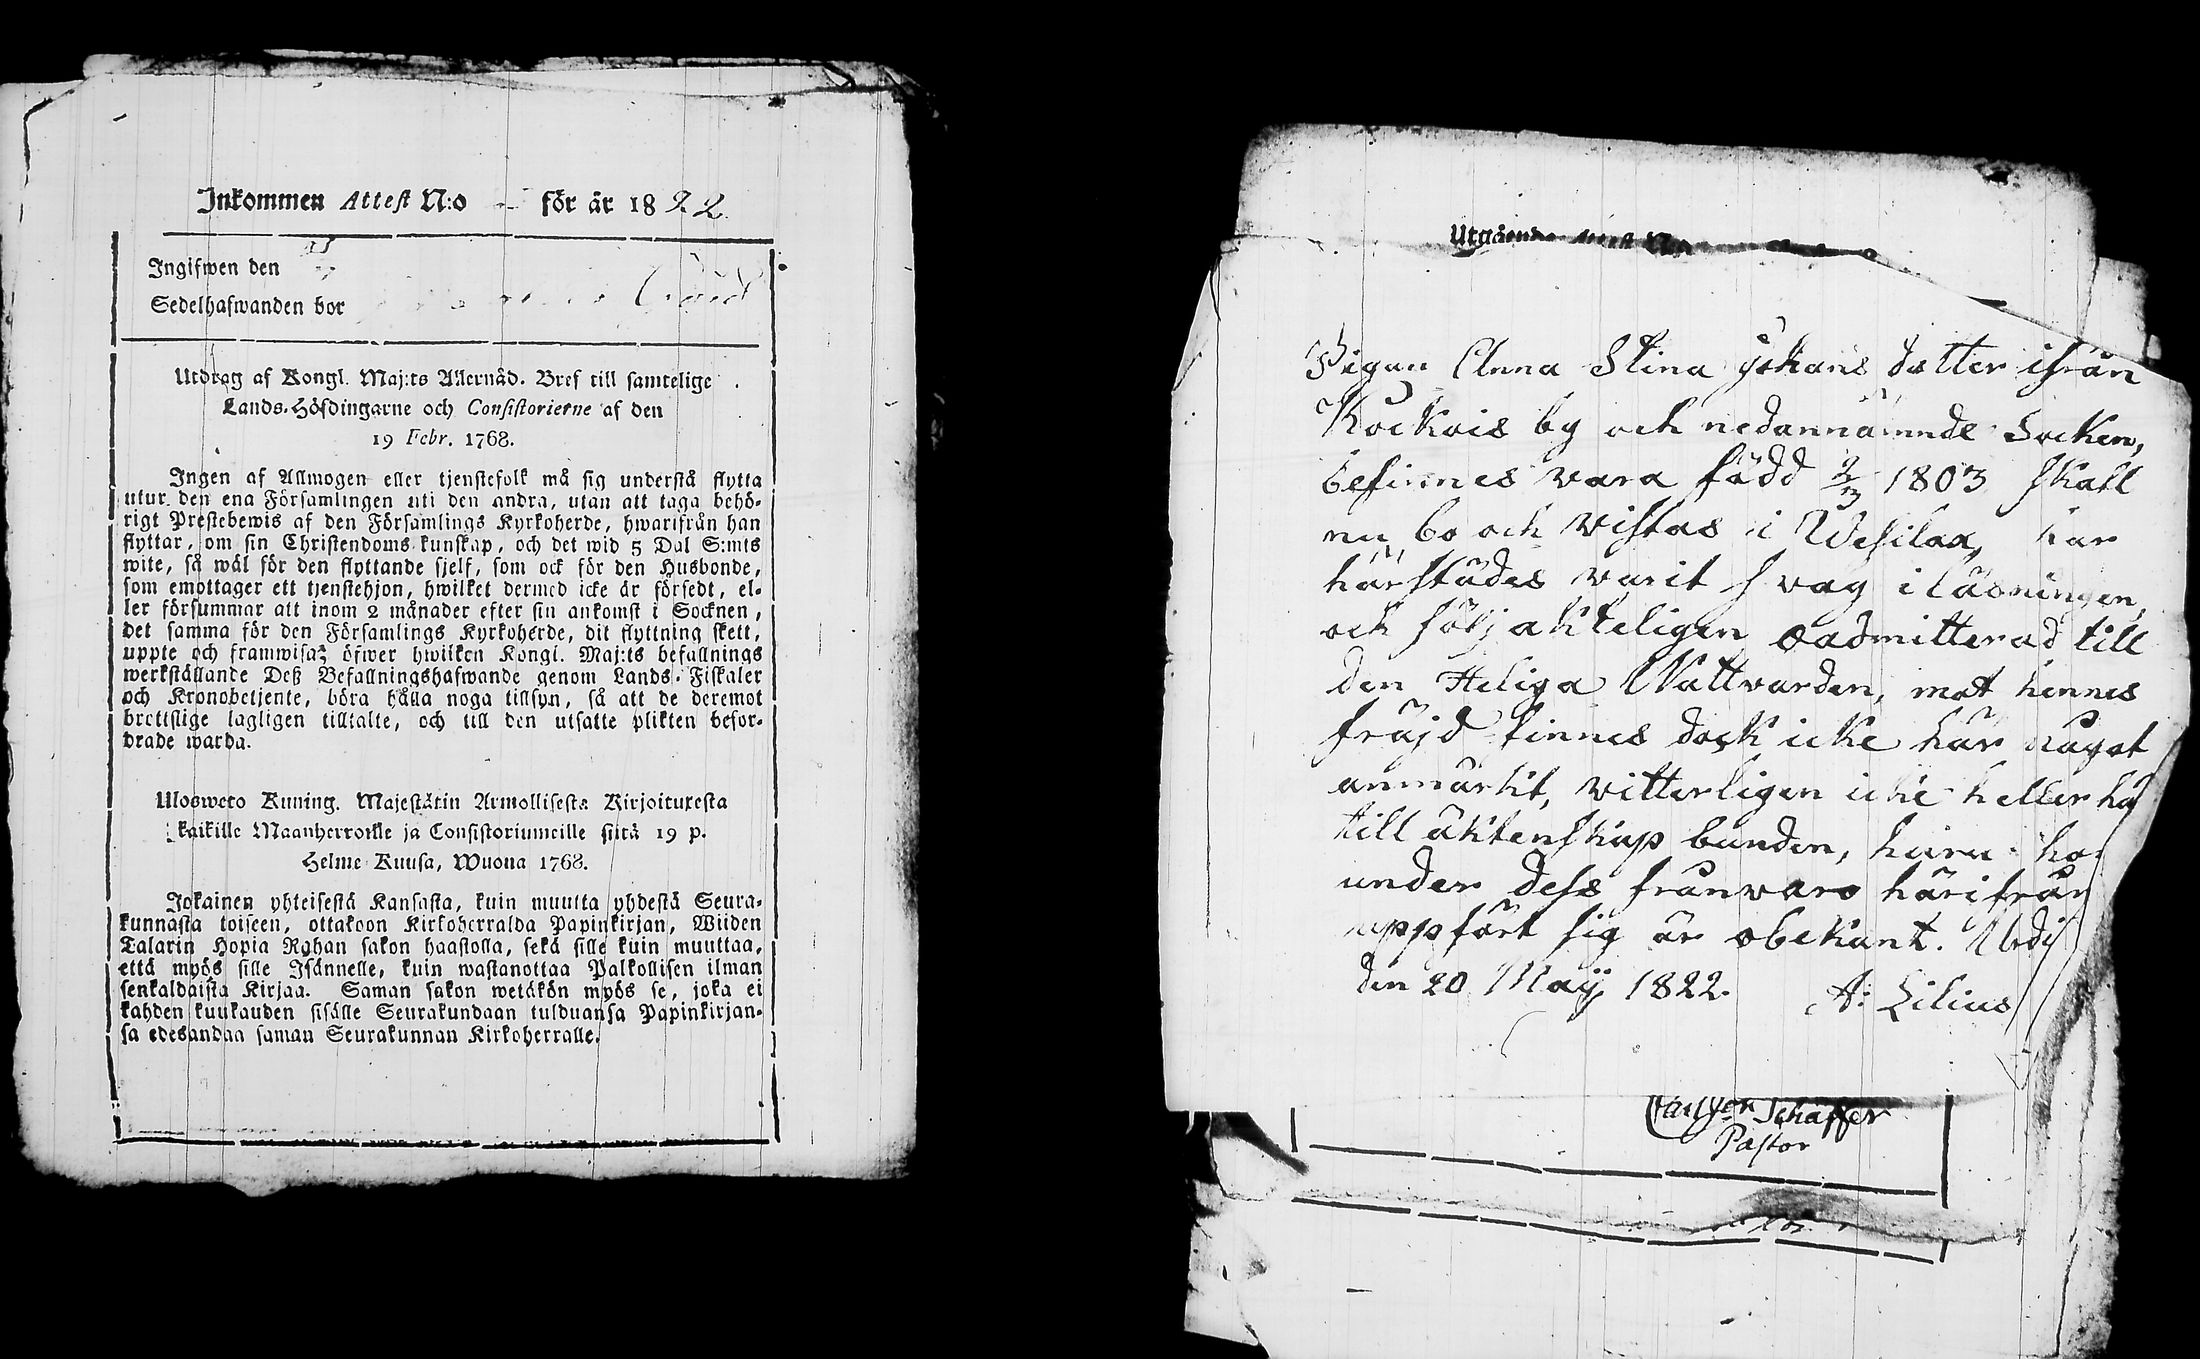 Inkommen Attest N:o för år 1822
Ingifwen den
Sedelhafwanden bor
Utdrag af Kongl. Maj:ts Allernåd. Bref till samtelige
Lands-Höfdingarne och Consistorierne af den
19 Febr. 1768.
Ingen af Allmogen eller tjenstefolk må sig understå flytta
utur den ena Församlingen uti den andra, utan att taga behö-
rigt Prestebewis af den Församlings Kyrkoherde, hwarifrån han
flyttar, om sin Christendoms kunskap, och det wid 5 Dal S:mts
wite, så wäl för den flyttande sjelf, som ock för den Husbonde,
som emottager ett tjenstehjon, hwilket dermed icke är försedt, el-
ler försummar att inom 2 månader efter sin ankomst i Socknen,
det samma för den Församlings Kyrkoherde, dit flyttning skett,
uppte och framwisa; öfwer hwilken Kongl. Maj:ts befallnings
werkställande Deß Befallningshafwande genom Lands-Fiskaler
och Kronobetjente, böra hålla noga tillsyn, så att de deremot
brottslige lagligen tilltalte, och till den utsatte plikten befor-
drade warda.
Ulosweto Kuning. Majestätin Armollisesta Kirjoituxesta
kaikille Maanherroille ja Consistoriumeille siitä 19 p.
Helme Kuusa, Wuona 1768.
Jokainen yhteisestä Kansasta, kuin muutta yhdestä Seura-
kunnasta toiseen, ottakoon Kirkoherralda Papinkirjan, Wiiden
Talarin Hopia Rahan sakon haastolla, sekä sille kuin muuttaa,
että myös sille Isännelle, kuin wastanottaa Palkollisen ilman
senkaldaista Kirjaa. Saman sakon wetäkön myös se, joka ei
kahden kuukauden sisälle Seurakundaan tulduansa Papinkirjan-
sa edesandaa saman Seurakunnan Kirkoherralle.
Utgående Attest N:o
Pigan Anna Stina Johans dotter ifrån
Kockois by och nedannämnde Socken,
befinnes vara född 2/3 1803 skall
nu bo och vistas i Wesilax, har
härstädes varit svag i läsningen,
och följakteligen oadmitterad till
den Heliga Nattvarden, mot hennes
fräjd finnes dock icke här något
anmärkt, vitterligen icke heller hä
till äktenskap bunden, huru ho
under dess frånvaro härifrån
uppfört sig är obekant. Urdi
den 20 Maÿ 1822. A: Lilius
Schäffer
Pastor